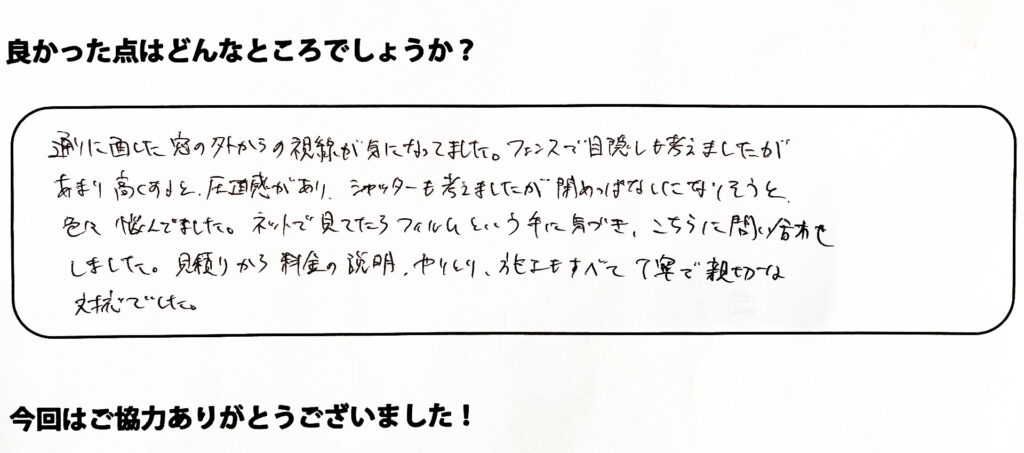 良かった点はどんなところでしょうか？
通りに面した窓の外からの視線が気になってました。フェンスで目隠しも考えましたが
あまり高くすると、圧迫感があり、シャッターも考えましたが閉めっぱなしになりそうと、
色々悩んでました。ネットで見てたらフィルムという手に気づき、こちらに問い合わせ
しました。見積りから料金の説明、やりとり、施工もすべて丁寧で親切な
対応でした。
今回はご協力ありがとうございました！